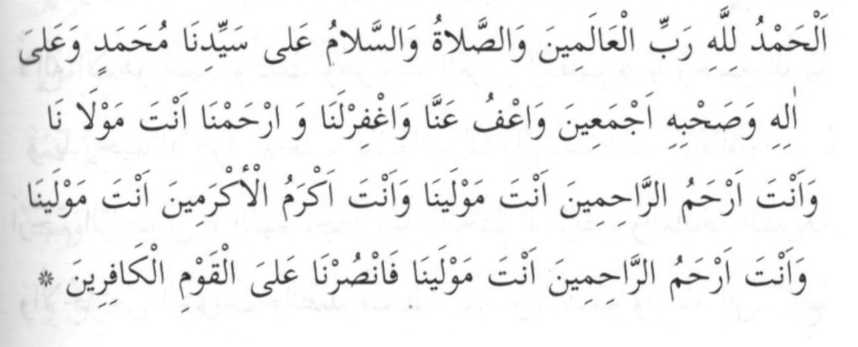 اَلْحَمْدُ لِلَّهِ رَبِّ الْعَالَمِينَ وَالصَّلاةُ وَالسَّلامُ عَلى سَيِّدِنَا مُحَمَدٍ وَعَلىَ
اٰلِهِ وَصَحْبِهِ اَجْمَعِينَ وَاعْفُ عَنَّا وَاغْفِرْلَنَا وَ ارْحَمْنَا اَنْتَ مَوْلَا نَا
وَاَنْتَ اَرْحَمُ الرَّاحِمِينَ اَنْتَ مَوْلَينَا وَاَنْتَ اَكْرَمُ الْأكْرَمِينَ اَنْتَ مَوْلَينَا
وَاَنْتَ اَرْحَمُ الرَّاحِمِينَ اَنْتَ مَوْلَينَا فَانْصُرْنَا عَلىَ الْقَوْمِ الْكَافِرِينَ *